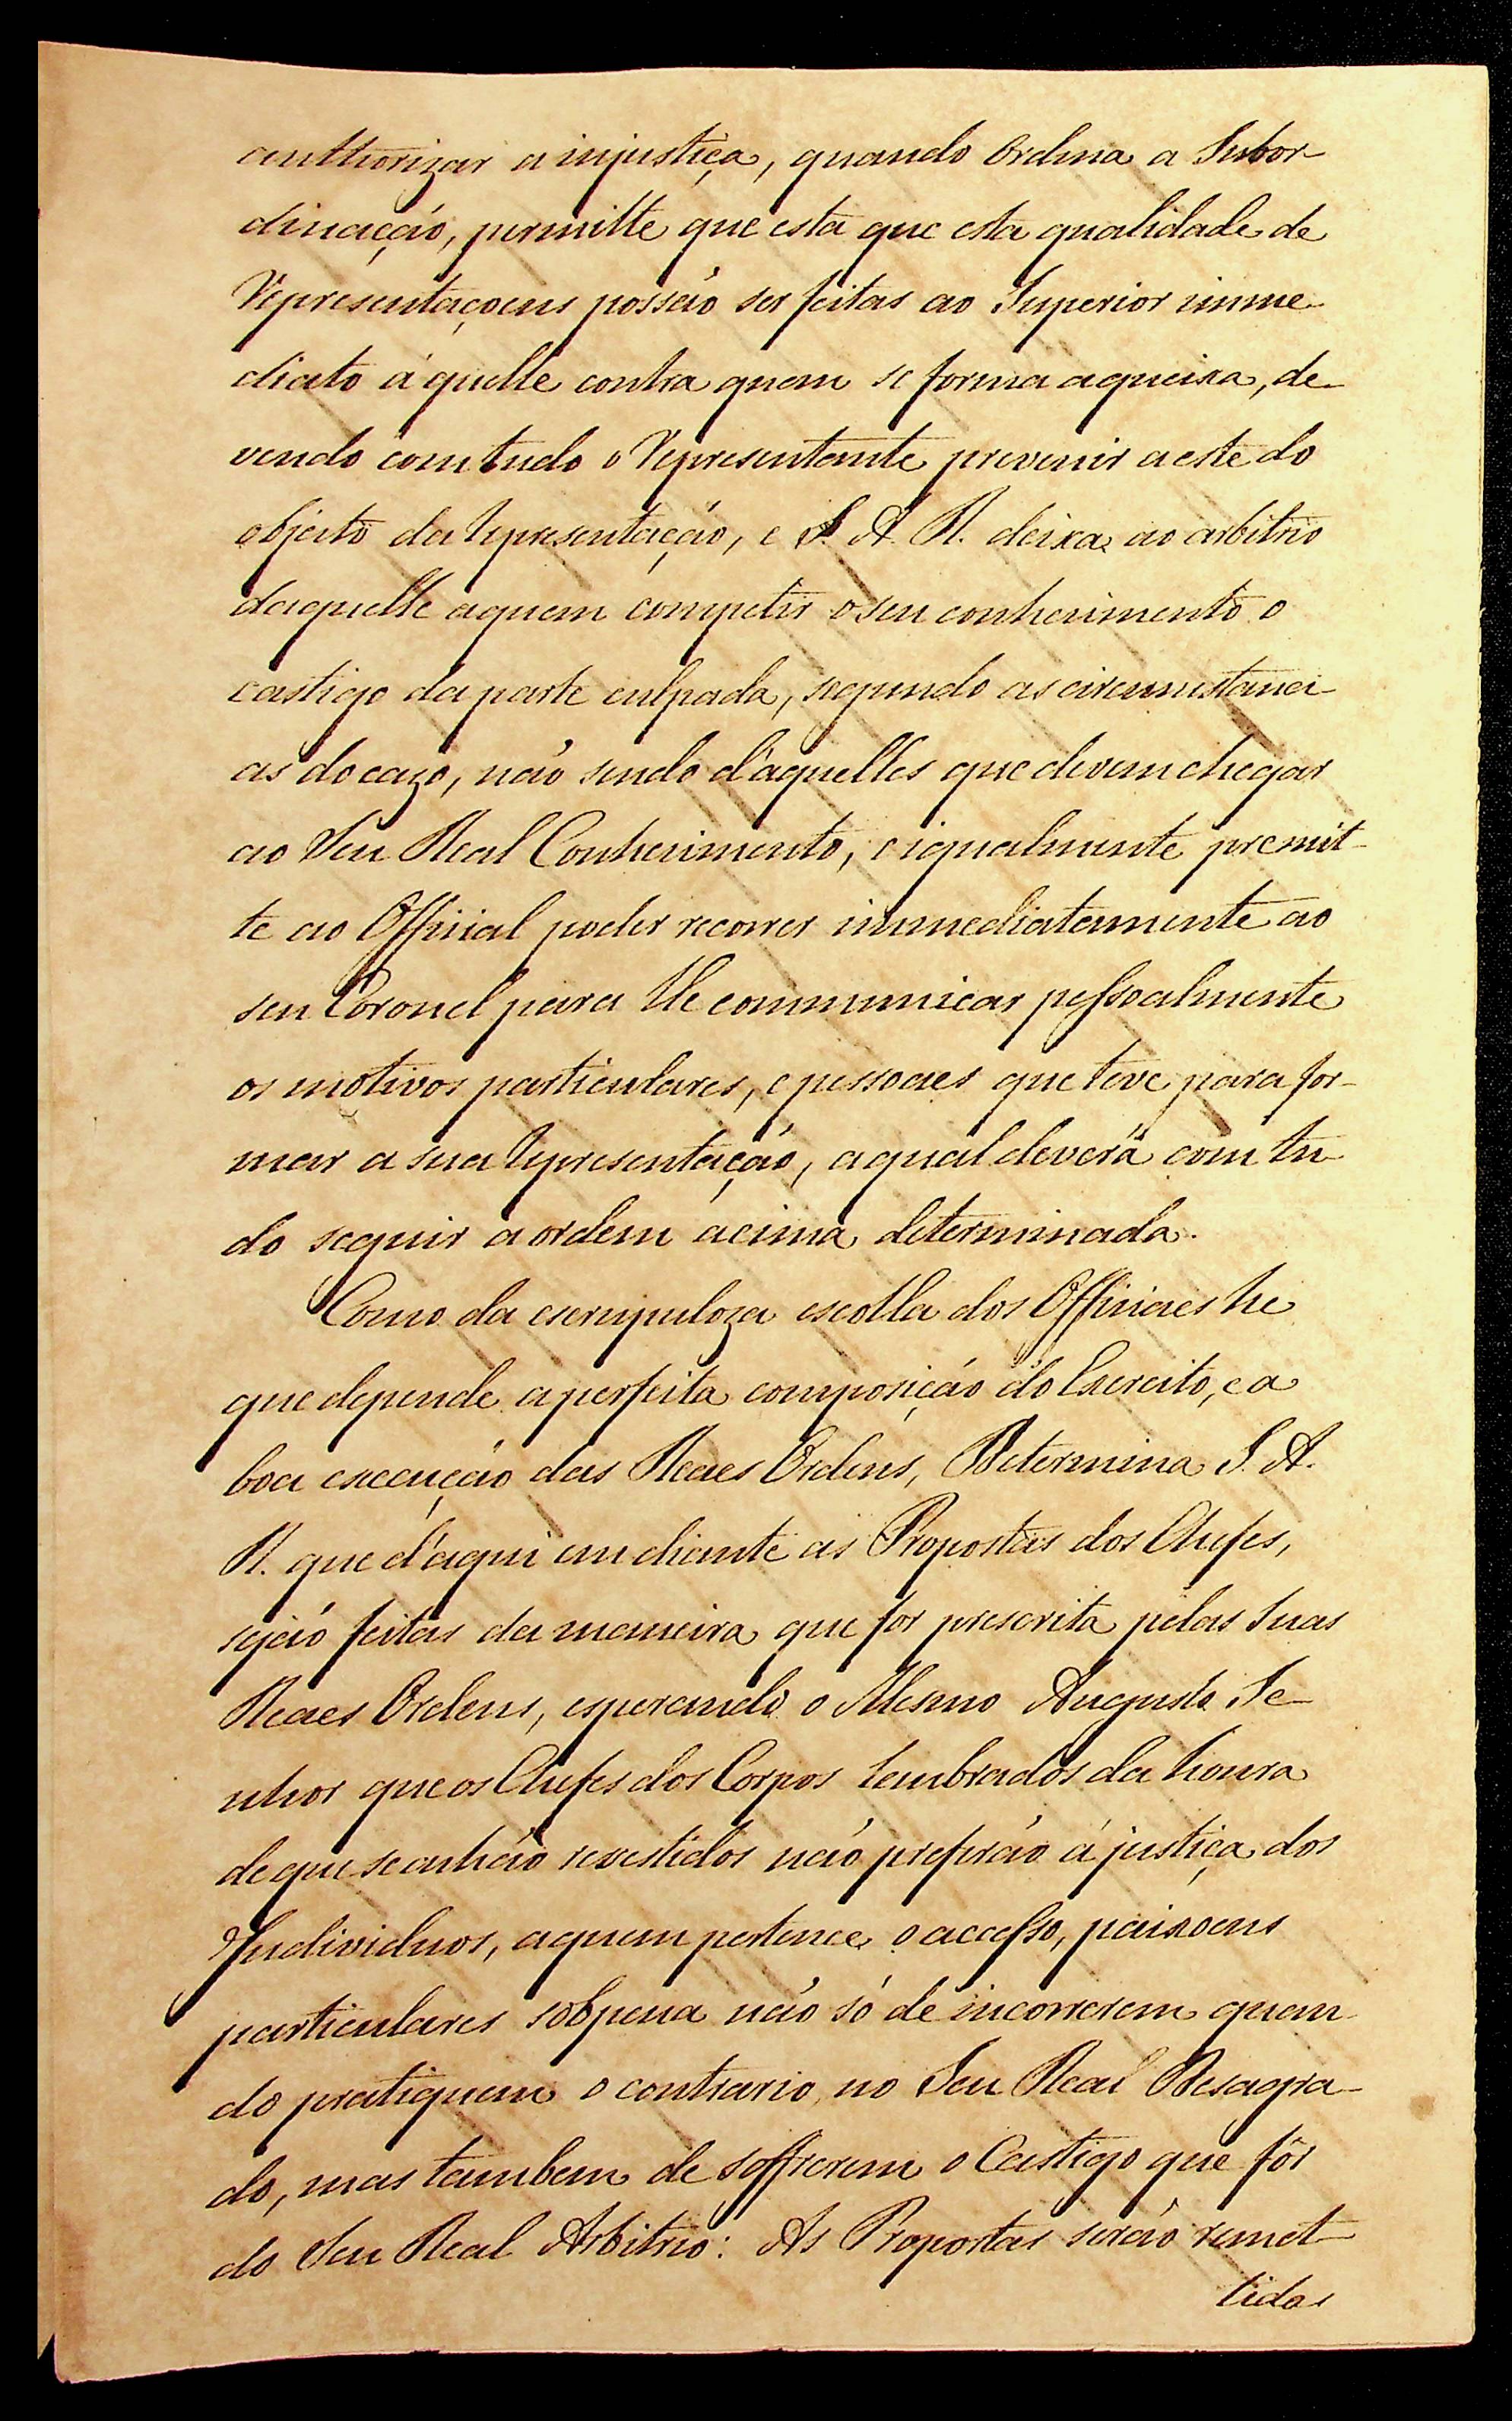 authorizar a injustiça, quando Ordena a Subor-
dinação, permitte que esta que esta qualidade de
Representaçoens possão ser feitas ao Superior imme-
diato á quelle contra quem se forma aqueixa, de-
vendo com tudo o Representante prevenir a este do
objecto da Representação, e S. A. R. deixa ao arbitrio
daquelle aquem competir o seu conhecimento o
castigo da parte culpada, segundo as circumstanci-
as do cazo, não sendo d'aquelles que devem chegar
ao Seu Real Conhecimento, e igualmente premit-
te ao Official poder recorrer immediatamente ao
seu Coronel para lhe communicar pessoalmente
os motivos particulares, e pessoaes que teve para for-
mar a sua Representação, aqual deverá com tu-
do seguir a ordem acima determinada.
Como da escrupuloza escolha dos Officiaes he
que depende a perfeita composição do Exercito, e a
boa execução das Reaes Ordens, Determina S. A.
R. que d'aqui em diante as Propostas dos Chefes,
sejão feitas da maneira que for prescrita pelas Suas
Reaes Ordens, esperando o Mesmo Augusto Se-
nhor que os Chefes dos Corpos lembrados da honra
de que se achão revestidos não prefirão á justiça dos
Individuos, aquem pertence o accesso, paixoens
particulares sobpena não só de incorrerem quan-
do pratiquem o contrario, no Seu Real Desagra-
do, mas tambem de soffrerem o Castigo que fôr
do Seu Real Arbitrio: As Propostas serão remet-
tidas